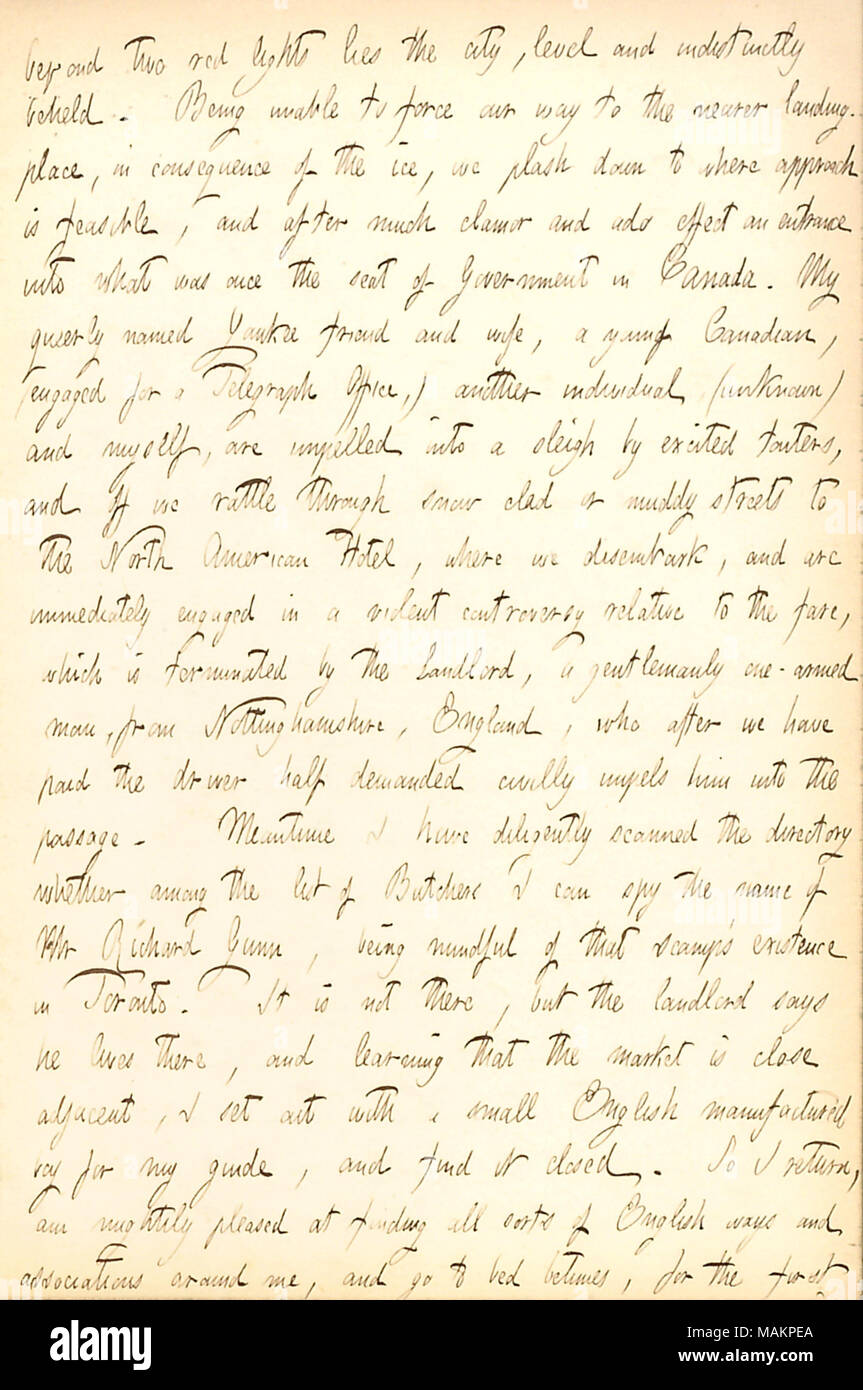 beyond two red lights lies the city, level and indistinctly
beheld. Being unable to force our way to the nearer landing-
place, in consequence of the ice, we plash down to where approach
is feasible, and after much clamor and ado effect an entrance
into what was once the seat of Government in Canada. My
queerly named Yankee friend and wife, a young Canadian,
(engaged for a Telegraph Office,) another individual (unknown)
and myself, are impelled into a sleigh by excited touters,
and off we rattle through snow clad or muddy streets to
the North American Hotel, where we disembark, and are
immediately engaged in a violent controversy relative to the fare,
which is terminated by the Landlord, a gentlemanly one-armed
man, from Nottinghamshire, England, who after we have
paid the driver half demanded civilly impels him into the
passage. Meantime I have diligently scanned the directory
whether among the list of Butchers I can spy the name of
Mr Richard Gunn, being mindful of that scamp's existence
in Toronto. It is not there, but the landlord says
he lives there, and learning that the market is close
adjacent, I set out with a small English manufactured
boy for my guide, and find it closed. So I return,
am mightily pleased at finding all sorts of English ways and
associations around me, and go to bed betimes, for the first
alamy
Image ID: MAKPEA
www.alamy.com